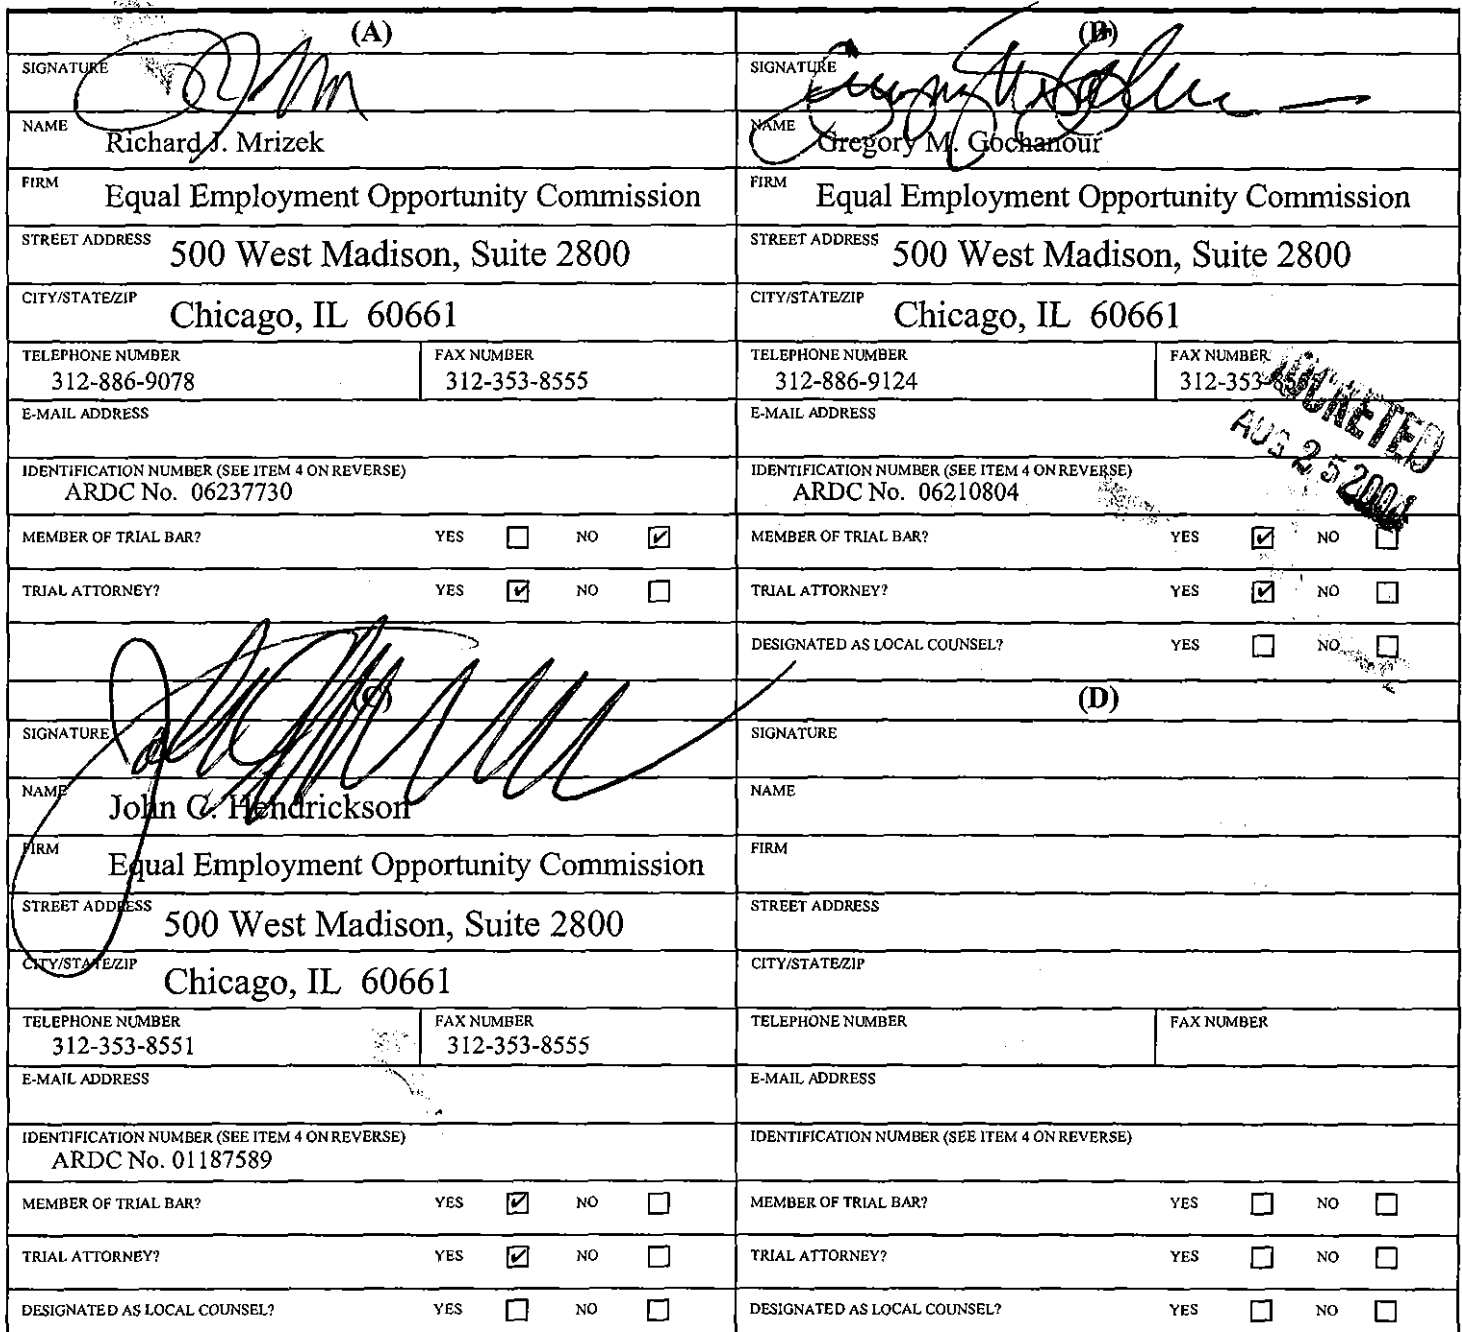 (A)
SIGNATURE
NAME
Richard J. Mrizek
FIRM
Equal Employment Opportunity Commission
STREET ADDRESS
500 West Madison, Suite 2800
CITY/STATE/ZIP
Chicago, IL 60661
TELEPHONE NUMBER
312-886-9078
FAX NUMBER
312-353-8555
E-MAIL ADDRESS
IDENTIFICATION NUMBER (SEE ITEM 4 ON REVERSE)
ARDC No. 06237730
MEMBER OF TRIAL BAR? YES ☐ NO ☑
TRIAL ATTORNEY? YES ☑ NO ☐
(B)
SIGNATURE
NAME
Gregory M. Gochanour
FIRM
Equal Employment Opportunity Commission
STREET ADDRESS
500 West Madison, Suite 2800
CITY/STATE/ZIP
Chicago, IL 60661
TELEPHONE NUMBER
312-886-9124
FAX NUMBER
312-353-
DOCKETED
AUG 25 2004
E-MAIL ADDRESS
IDENTIFICATION NUMBER (SEE ITEM 4 ON REVERSE)
ARDC No. 06210804
MEMBER OF TRIAL BAR? YES ☑ NO ☐
TRIAL ATTORNEY? YES ☑ NO ☐
DESIGNATED AS LOCAL COUNSEL? YES ☐ NO ☐
(C)
SIGNATURE
NAME
John C. Hendrickson
FIRM
Equal Employment Opportunity Commission
STREET ADDRESS
500 West Madison, Suite 2800
CITY/STATE/ZIP
Chicago, IL 60661
TELEPHONE NUMBER
312-353-8551
FAX NUMBER
312-353-8555
E-MAIL ADDRESS
IDENTIFICATION NUMBER (SEE ITEM 4 ON REVERSE)
ARDC No. 01187589
MEMBER OF TRIAL BAR? YES ☑ NO ☐
TRIAL ATTORNEY? YES ☑ NO ☐
DESIGNATED AS LOCAL COUNSEL? YES ☐ NO ☐
(D)
SIGNATURE
NAME
FIRM
STREET ADDRESS
CITY/STATE/ZIP
TELEPHONE NUMBER
FAX NUMBER
E-MAIL ADDRESS
IDENTIFICATION NUMBER (SEE ITEM 4 ON REVERSE)
MEMBER OF TRIAL BAR? YES ☐ NO ☐
TRIAL ATTORNEY? YES ☐ NO ☐
DESIGNATED AS LOCAL COUNSEL? YES ☐ NO ☐